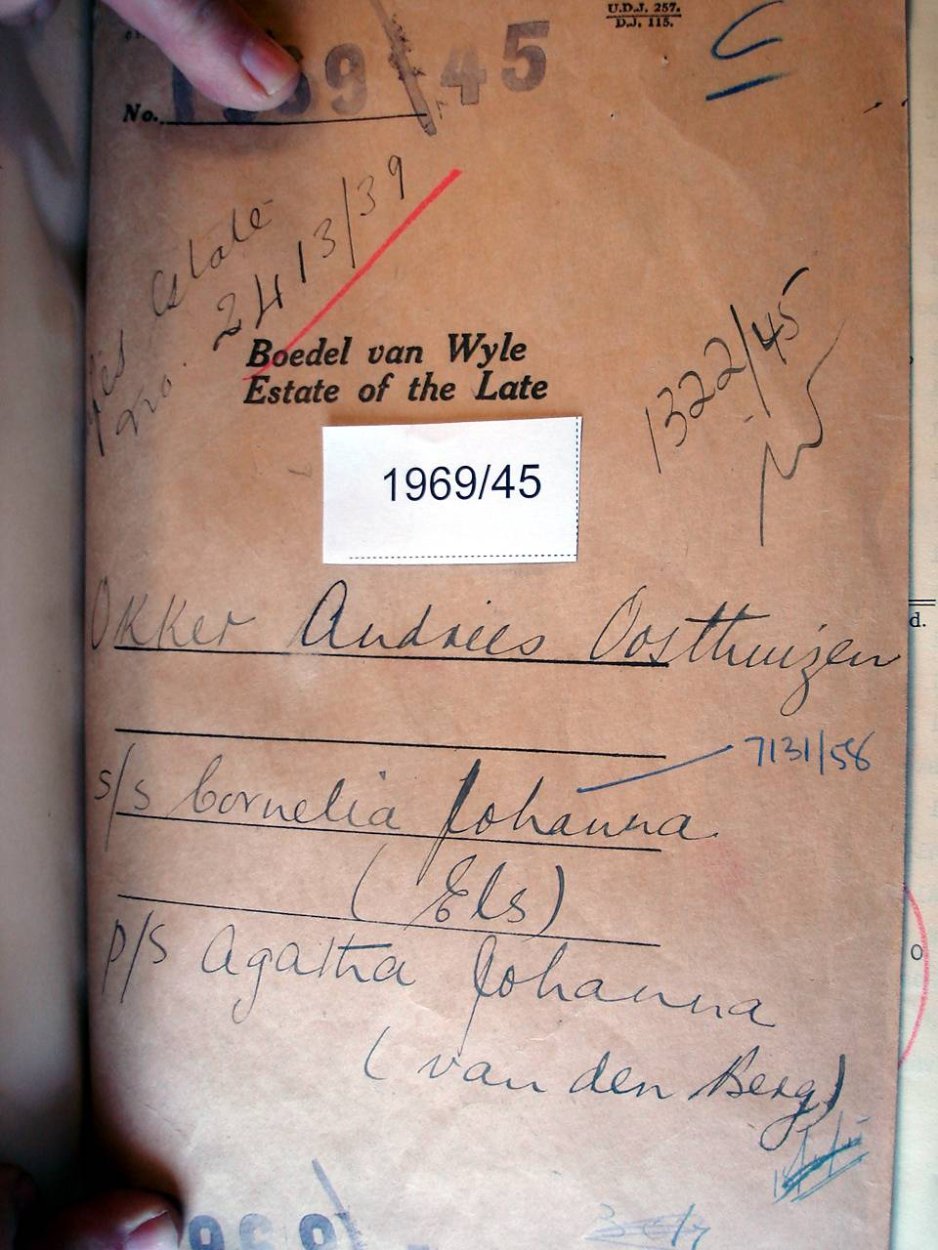 U.D.J. 257.
D.J. 115.
C
No. 69/45
Estate
No. 2413/39
Boedel van Wyle
Estate of the Late
1322/45
1969/45
Okker Andries Oosthuizen
7131/58
s/s Cornelia Johanna
(Els)
p/s Agatha Johanna
(van den Berg)
d.
o
969